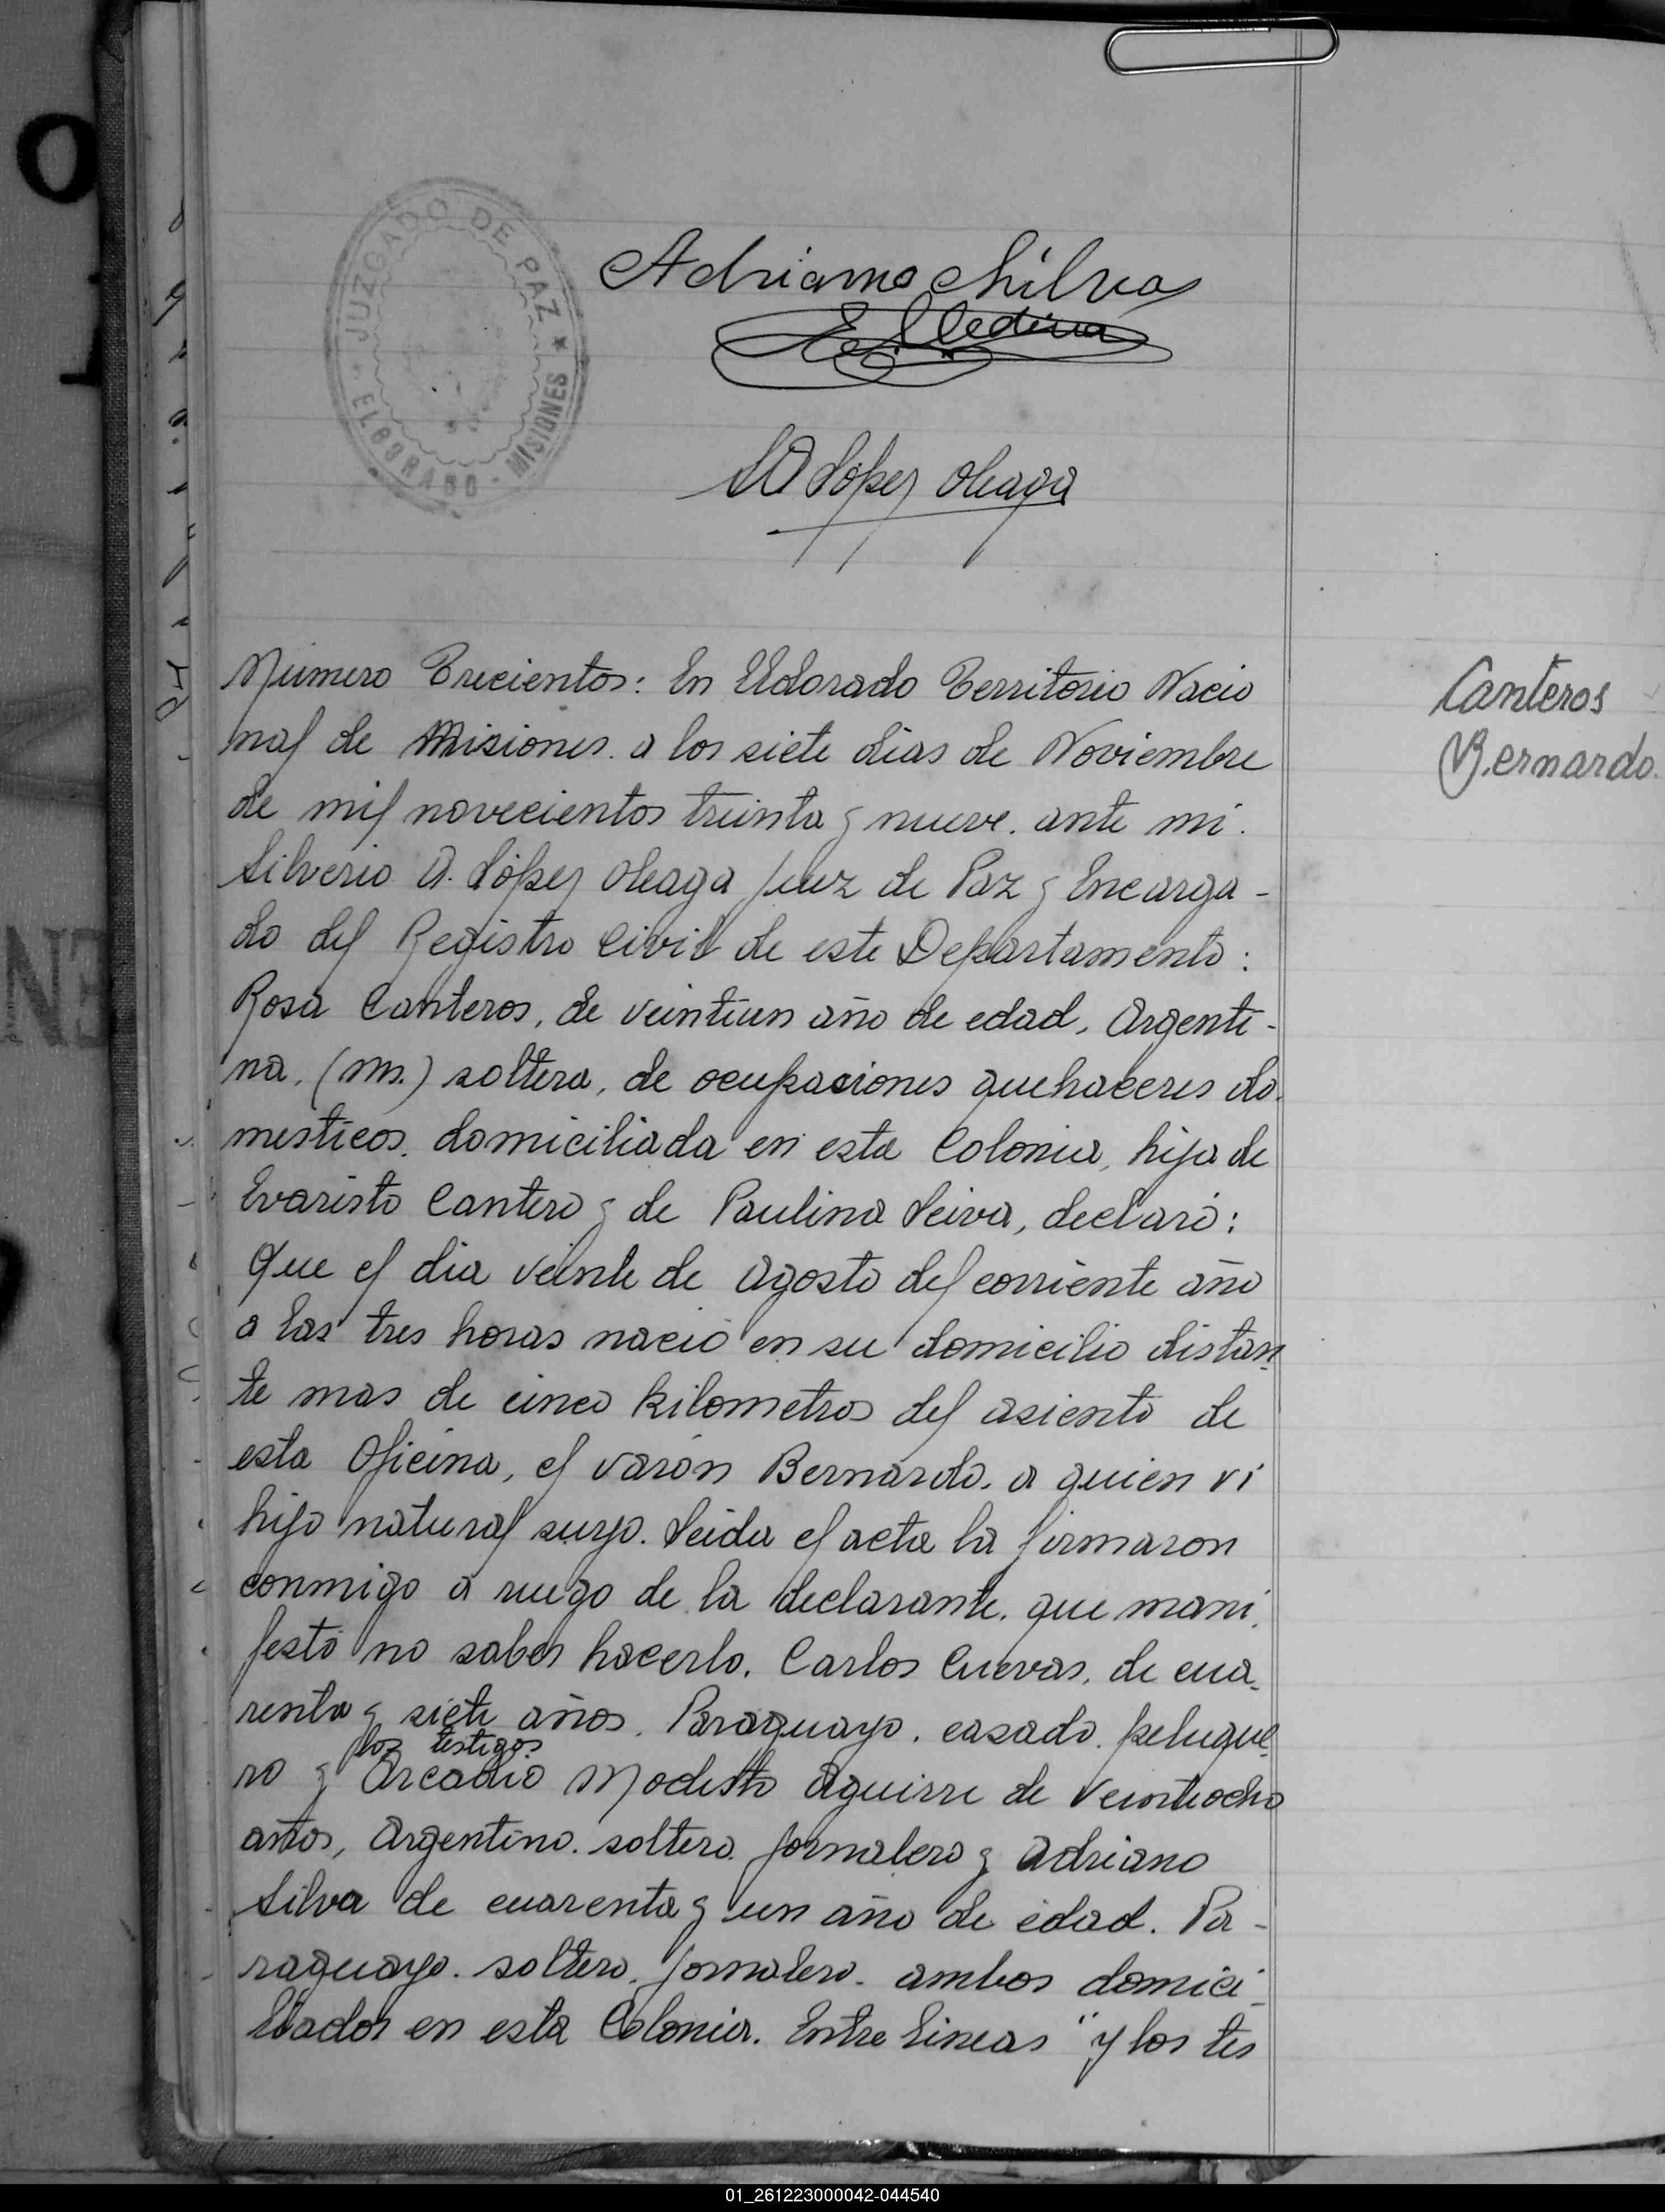 JUZGADO DE PAZ
ELDORADO - MISIONES
Adriano Silva
E. Medina
SA López Oleaga
Número Trecientos: En Eldorado Territorio Nacio
nal de Misiones. a los siete días de Noviembre
de mil novecientos treinta y nueve. ante mi.
Silverio A. López Oleaga Juez de Paz y Encarga-
do del Registro Civil de este Departamento:
Rosa Canteros, de veintiun año de edad, Argenti-
na, (m.) soltera, de ocupaciones quehaceres do.
mesticos. domiciliada en esta Colonia, hija de
Evaristo Cantero y de Paulina Leiva, declaró:
Que el dia veinte de Agosto del corriente año
a las tres horas nació en su domicilio distan
te mas de cinco kilometros del asiento de
esta Oficina, el varón Bernardo. a quien vi
hijo natural suyo. Leida el acta la firmaron
conmigo a ruego de la declarante. que mani.
festó no saber hacerlo. Carlos Cuevas. de cua.
renta y siete años. Paraguayo. casado. peluque.
los testigos
ro y Arcadio Modesto Aguirre de veintiocho
años, Argentino. soltero. jornalero y Adriano
Silva de cuarenta y un año de edad. Pa-
raguayo. soltero. jornalero. ambos domici_
liados en esta Colonia. Entre lineas "y los tes
Canteros
Bernardo.
01_261223000042-044540